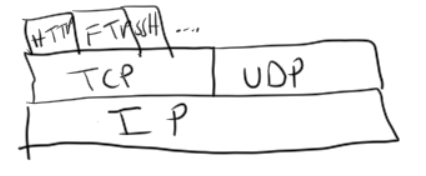 HTTP FTP SSH ....
TCP UDP
IP